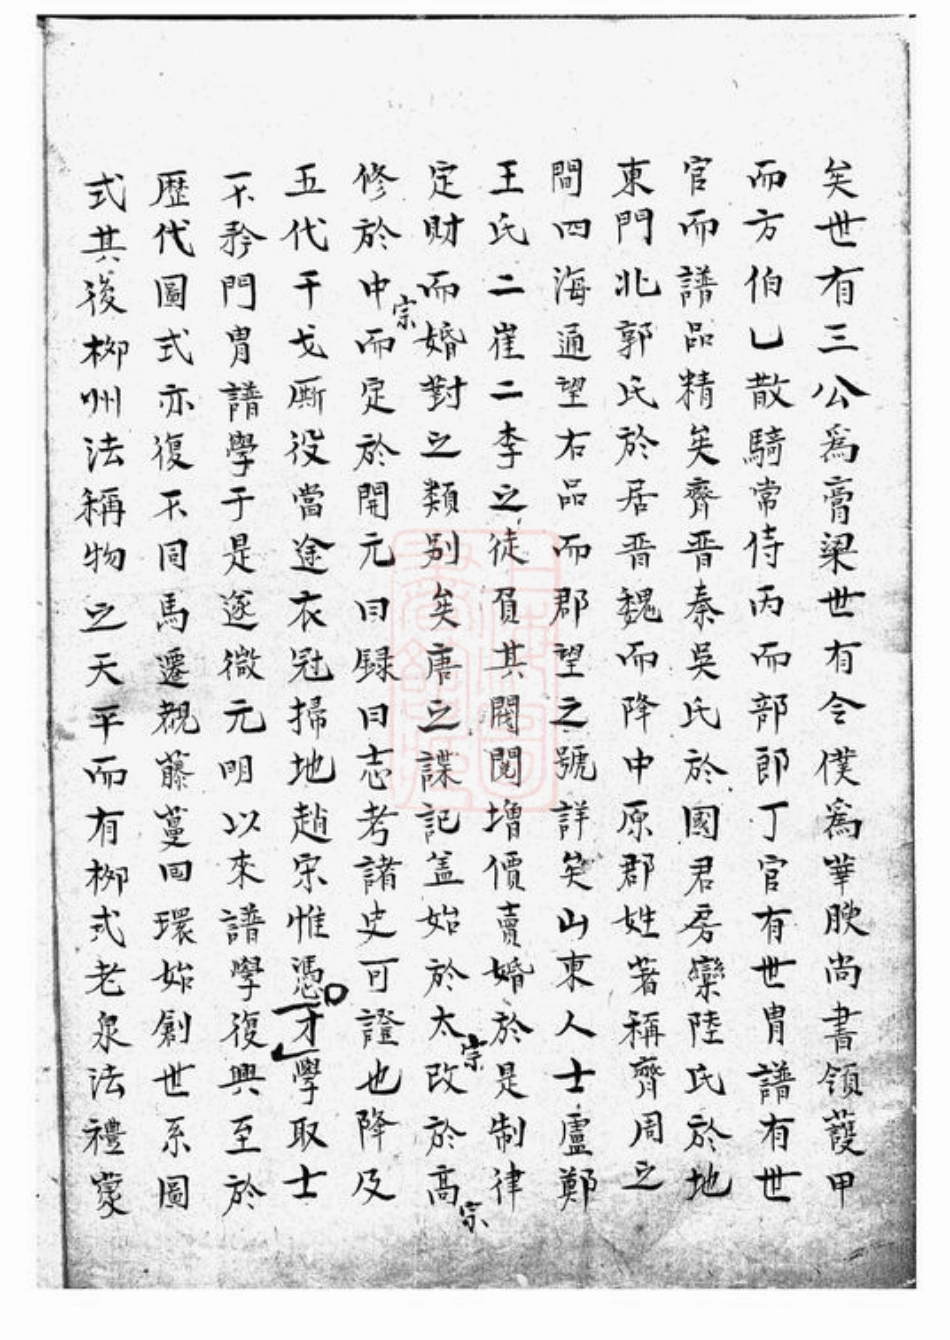 矣世有三公爲膏梁世有令僕爲華腴尚書領護甲
而方伯乙散騎常侍丙而部郎丁官有世胄譜有世
官而譜品精矣齊晋秦吳氏於國君房欒陸氏於地
東門北郭氏於居晋魏而降中原郡姓著稱齊周之
間四海通望右品而郡望之號詳矣山東人士盧鄭
王氏二崔二李之徒負其閥閱增價賣婚於是制律
定財而婚對之類別矣唐之諜記盖始於太宗改於高宗
修於中宗而定於開元曰録曰志考諸史可證也降及
五代干戈厮役當途衣冠掃地趙宋惟憑才學取士
不矜門胄譜學于是遂微元明以來譜學復興至於
歷代圖式亦復不同馬遷覩藤蔓回環始創世系圖
式其後柳州法稱物之天平而有柳式老泉法禮